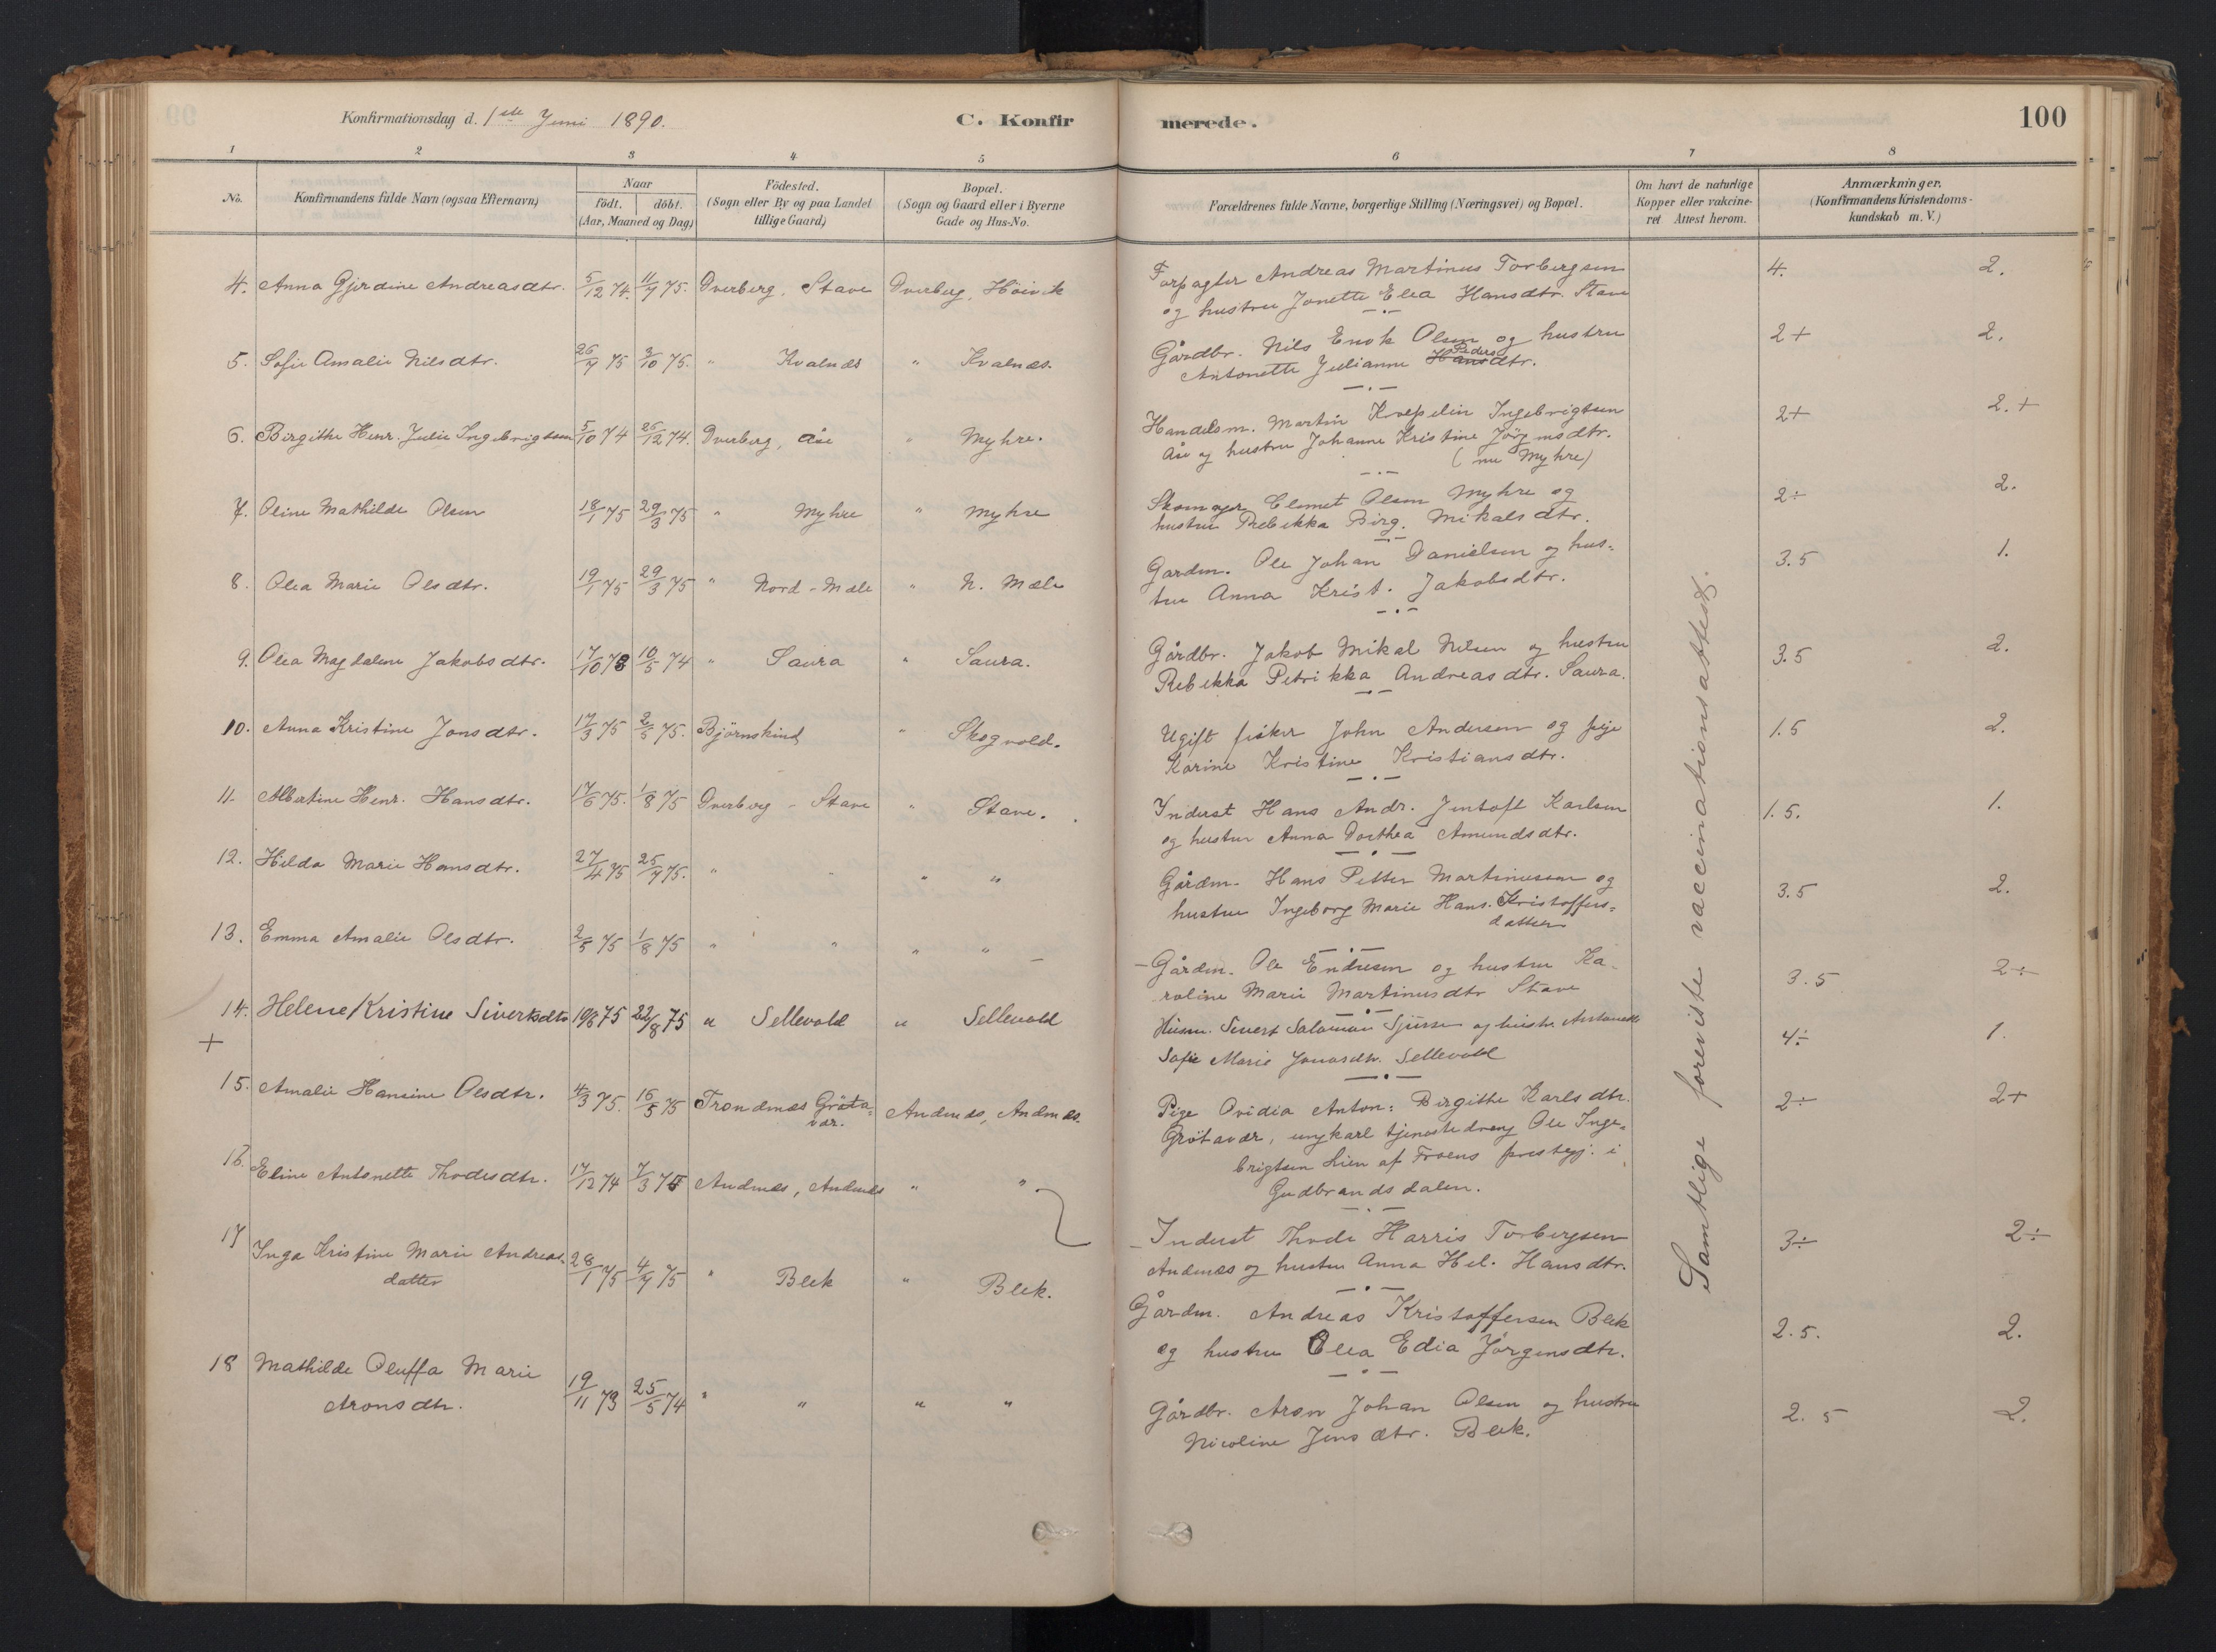 Konfirmationsdag d. 1ste Juni 1890. C. Konfirmerede. 100
1 2 3 4 5 6 7 8
No. Konfirmandens fulde Navn (ogsaa Efternavn) Naar födt. döbt. (Aar, Maaned og Dag) Födested. (Sogn eller By og paa Landet tillige Gaard) Bopæl. (Sogn og Gaard eller i Byerne Gade og Hus-No. Forældrenes fulde Navne, borgerlige Stilling (Næringsvei) og Bopæl. Om havt de naturlige Kopper eller vakcineret. Attest herom. Anmærkninger. (Konfirmandens Kristendomskundskab m. V.)
4. Anna Gjerdine Andreasdtr. 5/12 74. 11/7 75. Dverberg, Stave Dverberg, Höivik Forpagter Andreas Martinus Torbergsen 4. 2.
og hustru Jonette Elea Hansdtr. Stave
5. Sofie Amalie Nilsdtr. 26/7 75 3/10 75. " Kvalnæs " Kvalnæs. Gårdbr. Nils Enok Olsen og hustru 2+ 2.
Antonette Julianne Hans Pedersdtr.
6. Birgithe Henr. Julie Ingebrigtsen 5/10 74 26/12 74. Dverberg, Åse " Myhre. Handelsm. Martin Kræpelin Ingebrigtsen 2+ 2.+
Åse og hustru Johanne Kristine Jörgensdtr.
(nu Myhre)
7. Oline Mathilde Olsen 18/1 75 29/3 75 " Myhre " Myhre Skomager Clemet Olsen Myhre og 2÷ 2.
hustru Rebekka Birg. Mikalsdtr.
8. Olea Marie Olsdtr. 19/1 75 29/3 75 " Nord-Mæle " N. Mæle Gardm. Ole Johan Danielsen og hus- 3.5 1.
tru Anna Krist. Jakobsdtr.
9. Olea Magdalene Jakobsdtr. 17/10 73 10/5 74 " Saura " Saura. Gårdbr. Jakob Mikal Nilsen og hustru 3.5 2.
Rebekka Petrikka Andreasdtr. Saura.
10. Anna Kristine Jonsdtr. 17/3 75 2/5 75. Björnskind " Skogvold. Ugift fisker John Andersen og pige 1.5 2.
Karine Kristine Kristiansdtr.
11. Albertine Henr. Hansdtr. 17/6 75. 1/8 75 Dverberg - Stave " Stave. Inderst Hans Andr. Jentoft Karlsen 1.5. 1.
og hustru Anna Dorthea Amundsdtr.
12. Hilda Marie Hansdtr. 27/4 75 25/7 75. " " " " Gårdm. Hans Petter Martinussen og 3.5 2.
hustru Ingeborg Marie Hans. Kristoffers-
datter
13. Emma Amalie Olsdtr. 2/5 75 1/8 75 " " " " Gårdm. Ole Endresen og hustru Ka- 3.5 2÷
roline Marie Martinusdtr Stave
14. Helene Kristine Sivertsdtr 19/6 75 22/8 75 " Sellevold " Sellevold Husm. Sivert Salamon Sjursen og hustr. Antonette 4÷ 1.
+ Sofie Marie Jonasdtr. Sellevold
15. Amalie Hansine Olsdtr. 4/3 75. 16/5 75 Trondenæs Gröta- Andenæs, Andenæs. Pige Ovidia Anton: Birgithe Karlsdtr. 2÷ 2+
vær. Grötavær, ungkarl tjenestedreng Ole Inge-
brigtsen Lien af Froens prestegj. i
Gudbrandsdalen.
16. Eline Antonette Thodesdtr. 17/12 74 7/3 75 Andenæs, Andenæs " " Inderst Thode Harris Torbergsen 3÷ 2÷
Andenæs og hustru Anna Hel. Hansdtr.
17 Inga Kristine Marie Andreas- 28/1 75 4/7 75 " Bleik " Bleik. Gårdm. Andreas Kristoffersen Bleik 2.5. 2.
datter og hustru Olea Edia Jörgensdtr.
18 Mathilde Oluffa Marie 19/11 73 25/5 74 " " " " Gårdbr. Aron Johan Olsen og hustru 2.5 2.
Aronsdtr. Nicoline Jensdtr. Bleik.
Samtlige foreviste vaccinationsattest.